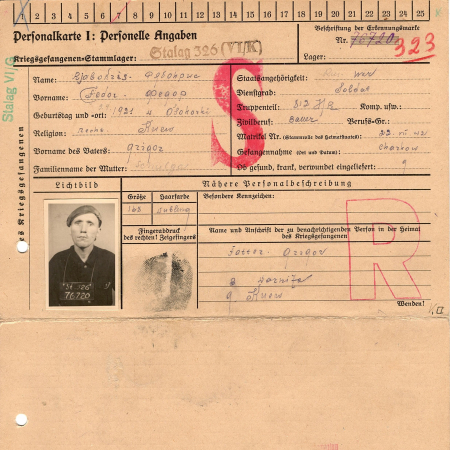 1 2 3 4 5 6 7 8 9 10 11 12 13 14 15 16 17 18 19 20 21 22 23 24 25
Personalkarte I: Personelle Angaben
Beschriftung der Erkennungsmarke
Nr. 76720
323
Stalag 326 (VI/K)
Kriegsgefangenen-Stammlager:
Lager:
Stalag VI/
des Kriegsgefangenen
S
Name:
Staatsangehörigkeit:
Vorname: Fedor - Федор
Dienstgrad: Soldat
Geburtstag und -ort: 1921
Truppenteil: 812 Komp. usw.:
Religion:
Zivilberuf: Bauer Berufs-Gr.:
Matrikel Nr. (Stammrolle des Heimatstaates):
Vorname des Vaters: Grigor
Gefangennahme (Ort und Datum): Charkow
Familienname der Mutter:
Ob gesund, krank, verwundet eingeliefert:
Lichtbild
Nähere Personalbeschreibung
Größe
Haarfarbe
Besondere Kennzeichen:
163
Fingerabdruck
des rechten! Zeigefingers
Name und Anschrift der zu benachrichtigenden Person in der Heimat
des Kriegsgefangenen
R
Vater: Grigor
g Kiew
St. 326
76720
Wenden!